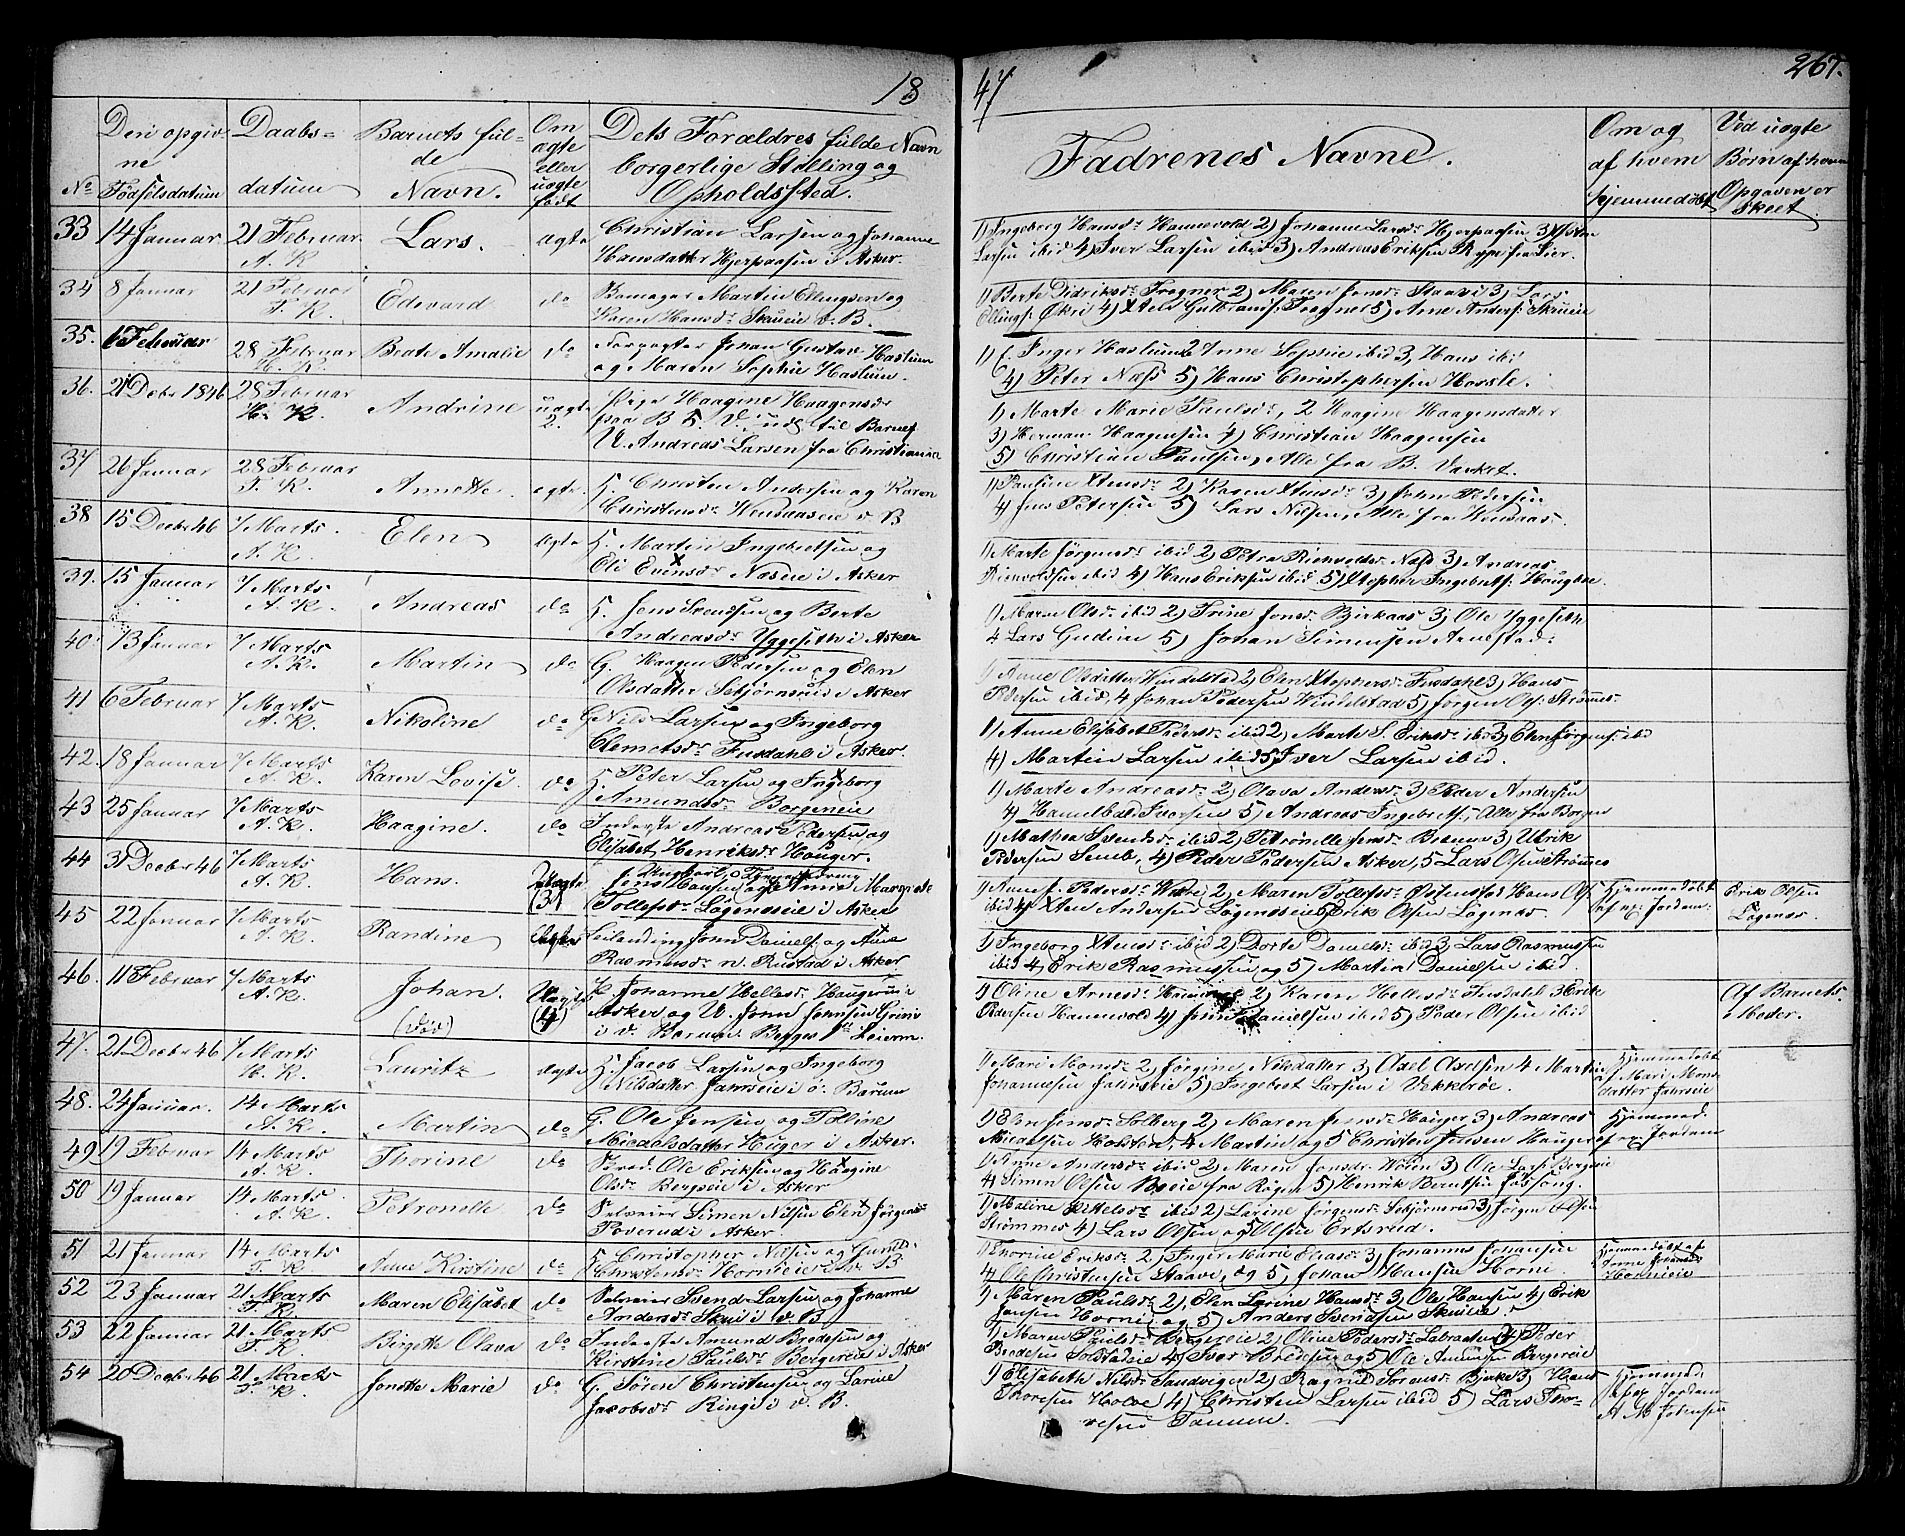 18
47
267.
No
Den opgivne Fødselsdatum
Daabsdatum
Barnets fulde Navn.
Om ægte eller uægte født
Dets Forældres fulde Navn borgerlige Stilling og Opholdssted.
Fadrenes Navne.
Om og af hvem hjemmedøbt
Ved uægte Børn af hvem Opgaven er skeet
33 14 Januar 21 Februar A. K. Lars. ægte Christian Larsen og Johanne
Hansdatter Hjerpaasen i Asker.
1) Ingeborg Hansdr Hannevold 2) Johanne Larsdr Hjerpaasen 3)
Larsen ibid 4) Iver Larsen ibid 3) Andreas Eriksen fra Lier.
34 8 Januar 21 Februar T. K. Edvard do Bomager Martin Ellingsen og
Karen Hansdr Skueie v. B.
1) Berte Didriksdr Fragner 2) Maren Jonsdr Staavi 3) Lars
Ellings. Økri 4) Xten Gulbrands. Fragner 5) Arne Anders. Skrueie
35. 6 Februar 28 Februar H. K. Beate Amalie do Forpagter Johan Gustav Haslum
og Maren Sophie Haslum.
1) f. Inger Haslum 2 Anne Sophie ibid 3, Hans ibi
4) Peter Næss 5) Hans Christophersen Hosle.
36. 21 Decbr 1846 28 Februar H. K. Andrine uægte 2. Pige Haagine Haagensdr
paa B. V. til Barnef
U. Andreas Larsen fra Christiania
1) Marte Marie Paulsdr, 2 Haagine Haagensdatter
3) Herman Haagensen 4) Christian Haagensen
5) Christian Paulsen, Alle fra B. Værket.
37 26 Januar 28 Februar T. K. Annette ægte H. Christen Andersen og Karen
Christensdr v B
1) Pauline Xtensdr 2) Karen Xtensdr 3) John Pedersen
4) Jens Petersen 5) Lars Nilsen, Alle fra
38 15 Decbr 46 7 Marts A. K. Elen ægte H. Martin Ingebretsen og
Eli Evensdr Næseie i Asker
1) Marte Jørgensdr ibid 2) Petra Næss 3) Andreas
ibid 4) Hans Eriksen ibid 5) Xstopher Ingebrets.
39. 15 Januar 7 Marts A. K. Andreas do H. Jens Svendsen og Berte
Andreasdr Yggeseth i Asker
1) Maren Olsdr ibid 2) Trine Jonsdr Birkaas 3) Ole Yggeseth
4 Lars Gudim 5) Johan Simensen Arnestad.
40. 13 Januar 7 Marts A. K. Martin do G. Haagen Pedersen og Elen
Olsdatter Sebjørnsrud i Asker
1) Anne Olsdatter Windelstad 2) Elen Xtophersdr Fusdahl 3) Hans
Pedersen ibid, 4 Johan Pedersen Windelstad 5) Jørgen Ols. Strømmes
41 6 Februar 7 Marts A. K. Nikoline do G Nils Larsen og Ingeborg
Clemetsdr Fusdahl i Asker.
1) Anne Elisabet Pedersdr ibid 2) Marte S. Eriksdr ibid 3) Elen Jørgens. ibid
4) Martin Larsen ibid 5) Iver Larsen ibid.
42. 18 Januar 7 Marts A. K. Karen Lovise. do H. Peter Larsen og Ingeborg
Amundsdr Borgeneie
1) Marte Andreasdr 2) Olava Andersdr 3) Peder Andersen
4) Iversen 5) Andreas Ingebrets., Alle fra Borgen
43 25 Januar 7 Marts A. K. Haagine. do Inderste Andreas Pedersen og
Elisabet Henriksdr Houger.
1) Mathea Svendsdr ibid 2) Petronelle Jensdr 3) Ulrik
Pedersen Semb, 4) Peder Pedersen Asker, 5 Lars Olsen Strømmes
44 31 Decbr 46 7 Marts A. K. Hans. Uægte (3) f. Ungkarl, Tjenestedreng
Jens Hansen og Anne Margrete
Tollefsdr Løgenæseie i Asker
1) Anne J. Pedersdr 2) Maren Tollefsdr Østensad Hans Ols.
ibid 4) Xten Andersen Løgenæseie 5) Erik Olsen Løgenæs.
Hjemmedøbt af ex: Jordem:
Erik Olsen Løgenæs.
45 22 Januar 7 Marts A. K. Randine ægte Leilænding John Daniels. og Anne
Rasmusdr n. Rustad i Asker
1) Ingeborg Xtensdr ibid 2) Dorte Danielsdr ibid 3) Lars Rasmussen
ibid 4) Erik Rasmussen og 5) Martin Danielsen ibid.
46. 11 Februar 7 Marts A. K. Johan. (død) Uægte (4) P. Johanne Hellesdr Haugerud i
Asker og U. John Johnsen Grini
i v. Bærum. Begges 1ste Leierm.
1) Oline Arnesdr 2) Karen Hellesdr Fusdahl 3 Erik
Pedersen Hannevold 4) Jens Danielsen ibid 5) Peder Olsen ibid
Af Barnets Moder.
47. 21 Decbr 46 7 Marts H. K. Lauritz ægte H. Jacob Larsen og Ingeborg
Nilsdatter Jarseie i ø. Bærum
1) Mari Monsdr 2) Jørgine Nilsdatter 3) Axel Axelsen 4 Martin
Johannesen 5) Ingebret Larsen i Vækkerøe.
Hjemmedøbt af Mari Monsdatter
48. 24 Januar. 14 Marts A. K. Martin do G. Ole Jensen og Tolline
Micaelsdatter Huger i Asker.
1) Elen Jensdr Solberg 2) Maren Jensdr Hauger 3) Andreas
Micaelsen Holsten, 4 Martin og 5 Christen Jensen Hauger
Hjemmed. af ex Jordem
49 19 Februar 14 Marts A. K. Thorine do Skred. Ole Eriksen og Haagine
Olsdr Bergseie i Asker
1) Anne Andersdr ibid 2) Maren Jonsdr 3) Ole Lars. Bergseie
4) Simen Olsen Boeie fra Røgen 5) Henrik Berntsen
50 19 Januar 14 Marts A. K. Petronelle do Selveier Simen Nilsen Elen Jørgensdr
Poverud i Asker
1) Maline Kittelsdr ibid 2) Lerine Jørgensdr Sebjørnsrud 3) Jørgen Olsen
Strømmes 4) Lars Olsen og 5 Olsen Ertsrud.
51 21 Januar 14 Marts T. K. Anne Kirstine do H. Christopher Næsen og
Christensdr Hornieie i v. B
1) Thorine Eriksdr 2) Inger Marie Eliasdr 3) Johannes Johansen
4 Ole Christensen Staavi, og 5, Johan Hansen Horni.
Hjemmedøbt af Hornieie
52 23 Januar 21 Marts T. K. Maren Elisabet do Selveier Svend Larsen og Johanne
Andersdr Skui i v. B
1) Maren Paulsdr 2) Elen Larine Hansdr 3) Ole Hansen 4) Erik
Jansen Horni og 5) Anders Svendsen Skuieie.
53 22 Januar 21 Marts T. K. Birgitte Olava do Inderste Amund Bredesen og
Kirstine Paulsdr Bergereie i Asker
1) Maren Paulsdr Bergereie 2) Oline Pedersdr 3) Peder
Bredesen Solstadeie 4) Iver Bredesen og 5) Ole Amundsen Bergereie
54 20 Decbr 46 21 Marts T. K. Jonette Marie do G. Søren Christensen og Larine
Jacobsdr Ringi i v. B.
1) Elisabeth Nilsdr Sandvigen 2) Ragnild Sørensdr Bjerke 3) Hans
Thoresen Holve 4) Christen Larsen ibid 5) Lars Thoresen
Tanum.
Hjemmed. af ex Jordem
A M Johnsen